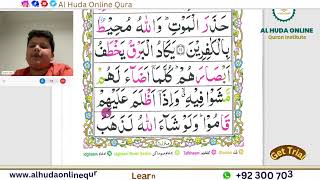 Al Huda Online Qura
حَذَرَ الْمَوْتِ ؕ وَاللّٰهُ مُحِيْطٌۢ
بِالْكٰفِرِيْنَ ۞ يَكَادُ الْبَرْقُ يَخْطَفُ
اَبْصَارَهُمْ ؕ كُلَّمَاۤ اَضَآءَ لَهُمْ
مَّشَوْا فِيْهِ ۙ وَاِذَاۤ اَظْلَمَ عَلَيْهِمْ
قَامُوْا ؕ وَلَوْ شَآءَ اللّٰهُ لَذَهَبَ
AL HUDA ONLINE
Quran Institute
Get Trial
www.alhudaonlinequr
Learn
+92 300 703